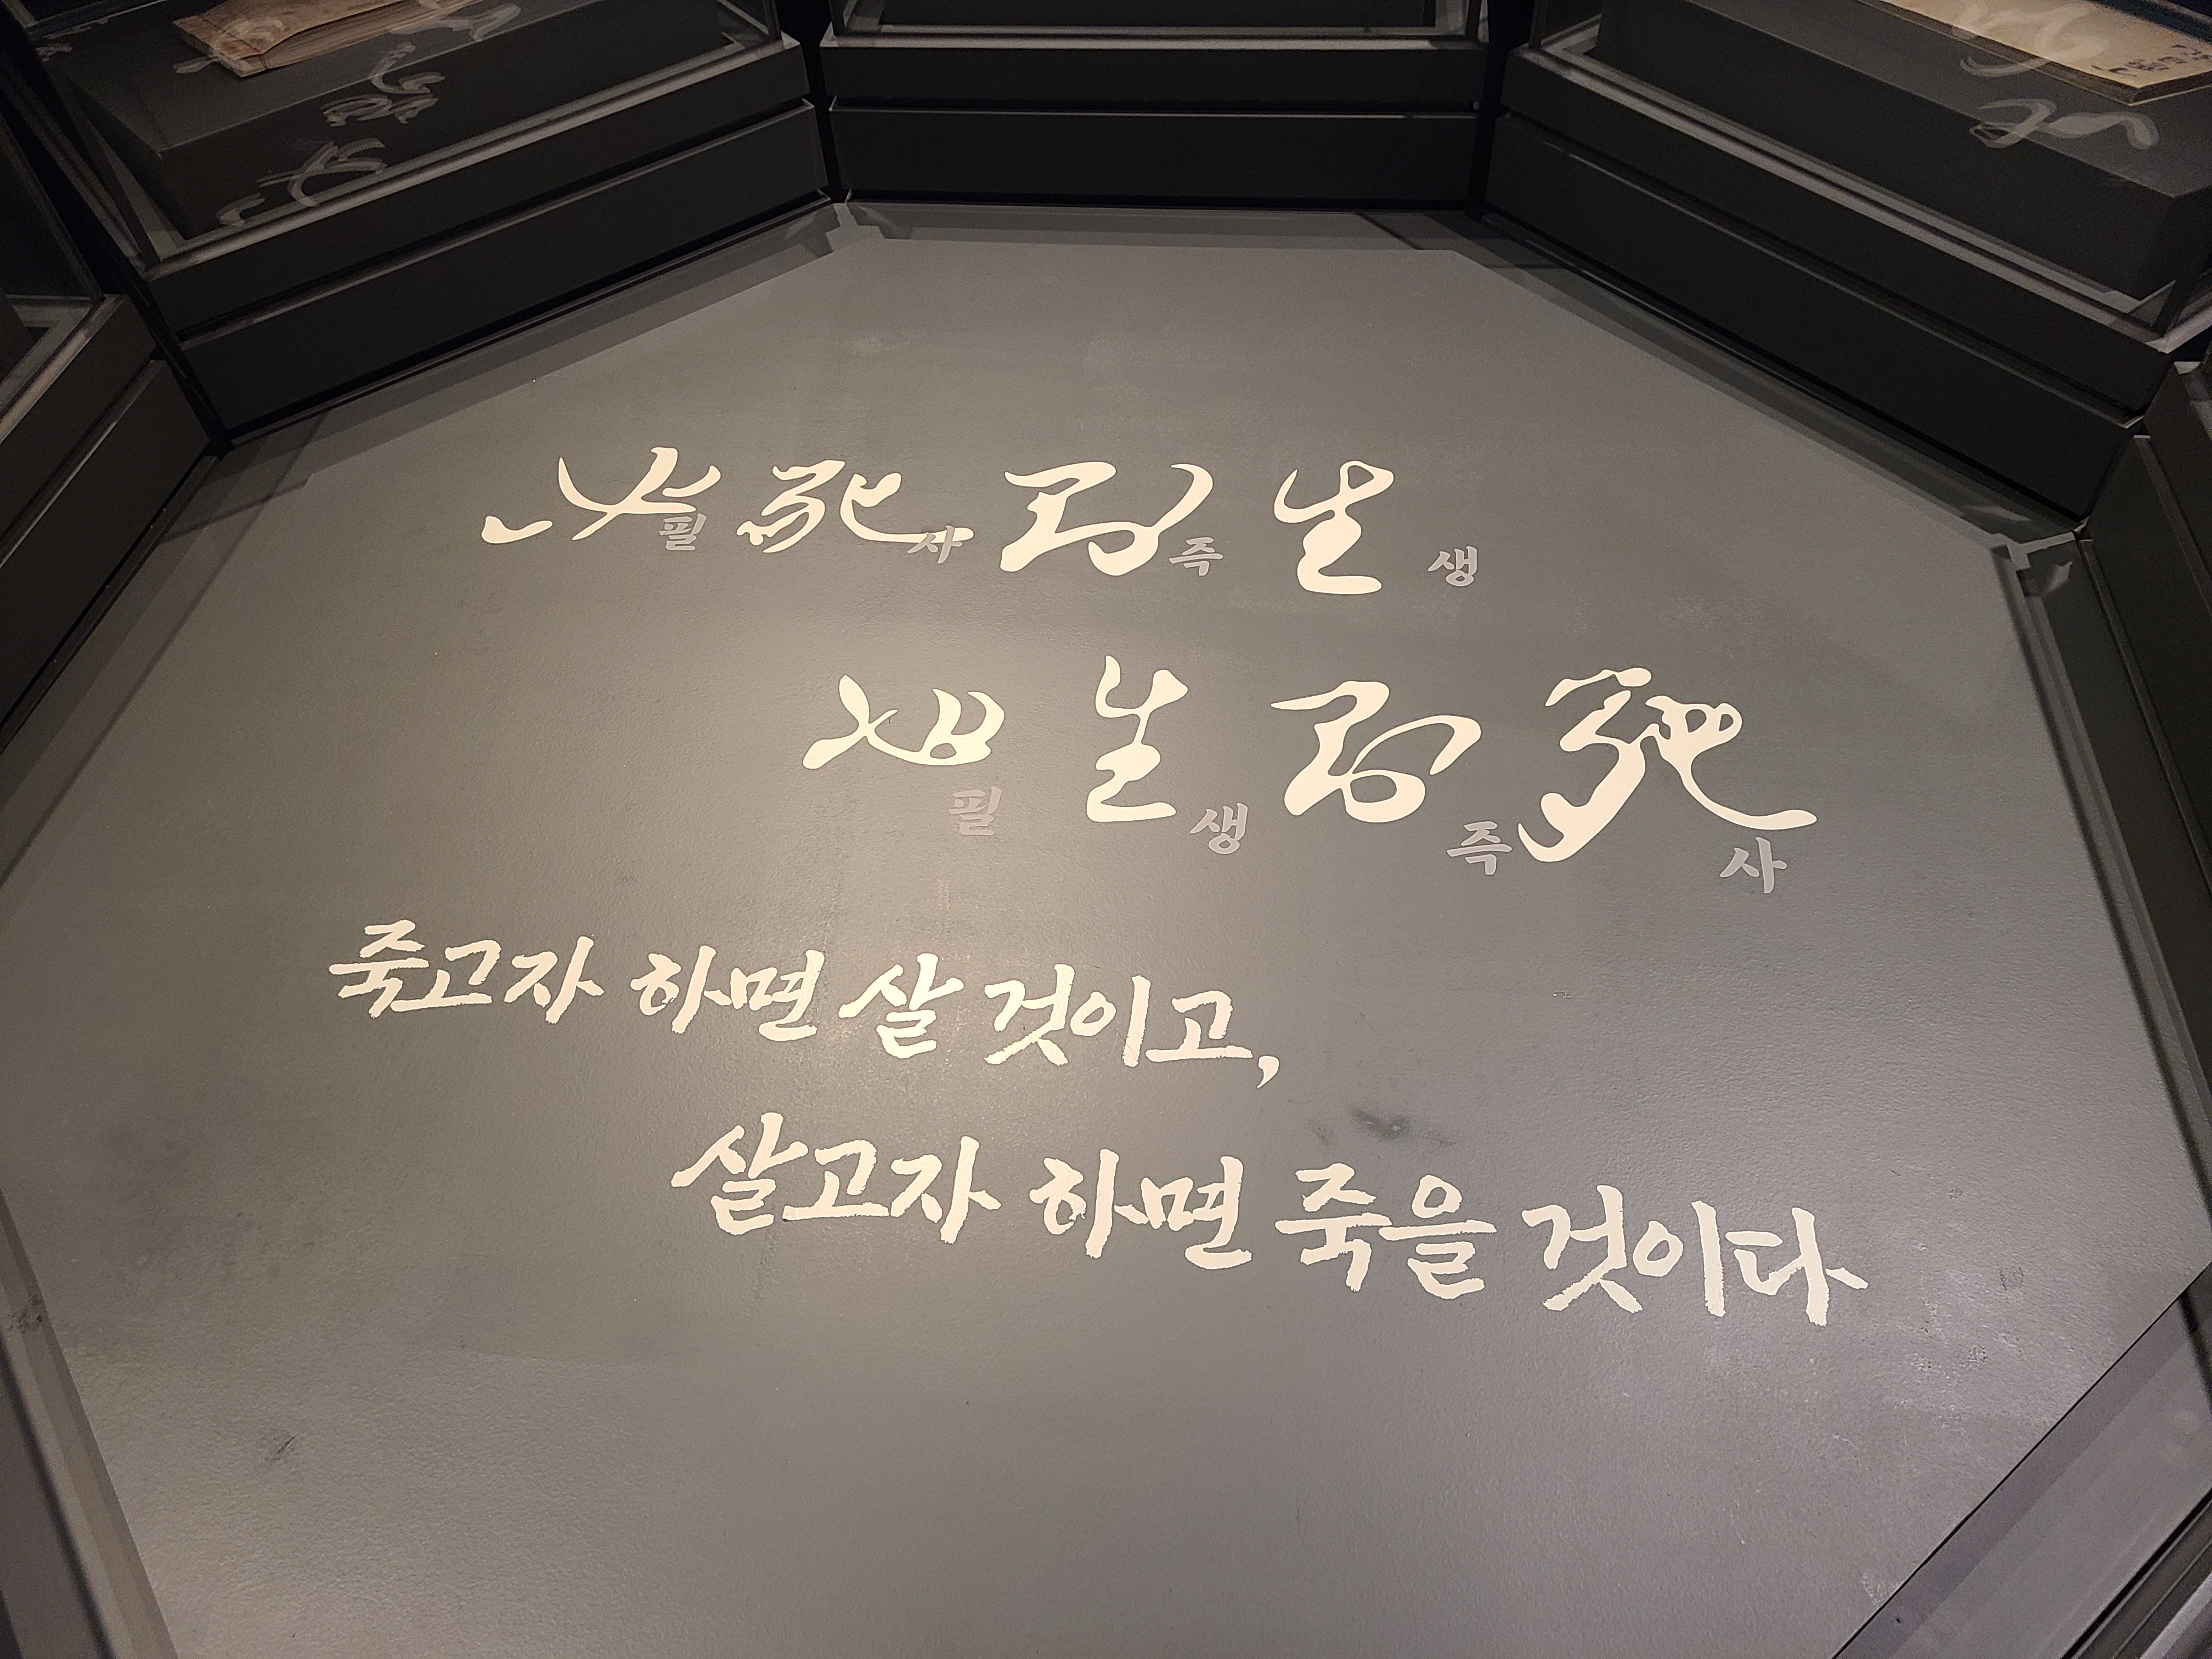 必死則生
필사즉생
必生則死
필생즉사
죽고자 하면 살 것이고,
살고자 하면 죽을 것이다